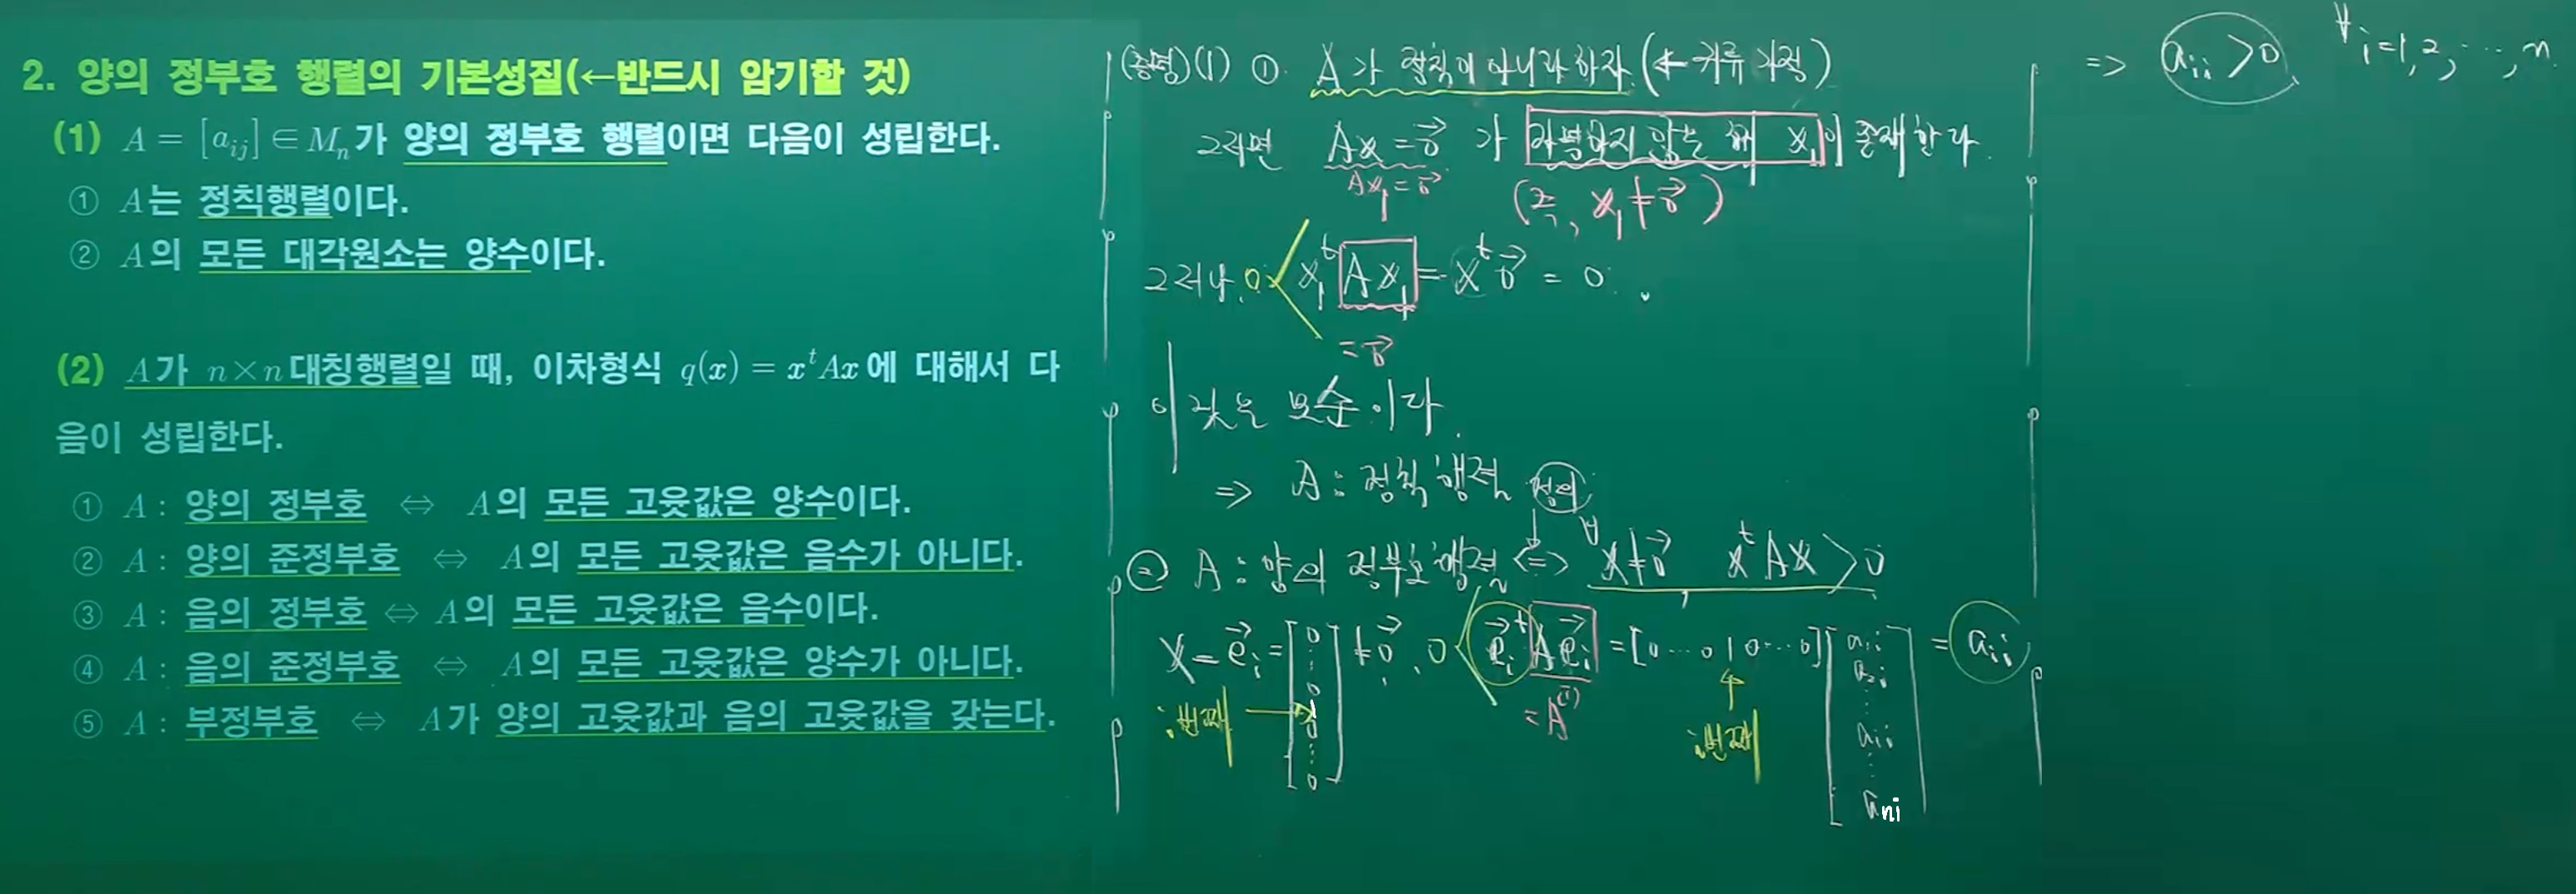 2. 양의 정부호 행렬의 기본성질(←반드시 암기할 것)
(1) A = [aᵢⱼ] ∈ Mₙ가 양의 정부호 행렬이면 다음이 성립한다.
① A는 정칙행렬이다.
② A의 모든 대각원소는 양수이다.
(2) A가 n×n대칭행렬일 때, 이차형식 q(x) = xᵗAx에 대해서 다
음이 성립한다.
① A : 양의 정부호 ⇔ A의 모든 고윳값은 양수이다.
② A : 양의 준정부호 ⇔ A의 모든 고윳값은 음수가 아니다.
③ A : 음의 정부호 ⇔ A의 모든 고윳값은 음수이다.
④ A : 음의 준정부호 ⇔ A의 모든 고윳값은 양수가 아니다.
⑤ A : 부정부호 ⇔ A가 양의 고윳값과 음의 고윳값을 갖는다.
(증명)(1) ① A가 정칙이 아니라 하자 (← 귀류가정)
그러면 Ax = 0⃗ 가 자명하지 않는 해 x₁이 존재한다.
Ax₁ = 0⃗ (즉, x₁ ≠ 0⃗)
그러나, 0 < x₁ᵗ Ax₁ = xᵗ 0⃗ = 0.
= 0⃗
이것은 모순이다.
⇒ A : 정칙행렬
정의
② A : 양의 정부호행렬 ⇔ ∀x ≠ 0⃗ xᵗAx > 0
x = e⃗ᵢ = [0 ⋮ 0 1 0 ⋮ 0] ≠ 0⃗, 0 < e⃗ᵢᵗ A e⃗ᵢ = [0 ⋯ 0 1 0 ⋯ 0] [a₁ᵢ a₂ᵢ ⋮ aᵢᵢ ⋮ aₙᵢ] = aᵢᵢ
i번째 → = A⁽ⁱ⁾ ↑ i번째
⇒ aᵢᵢ > 0, ∀i = 1, 2, ⋯, n.